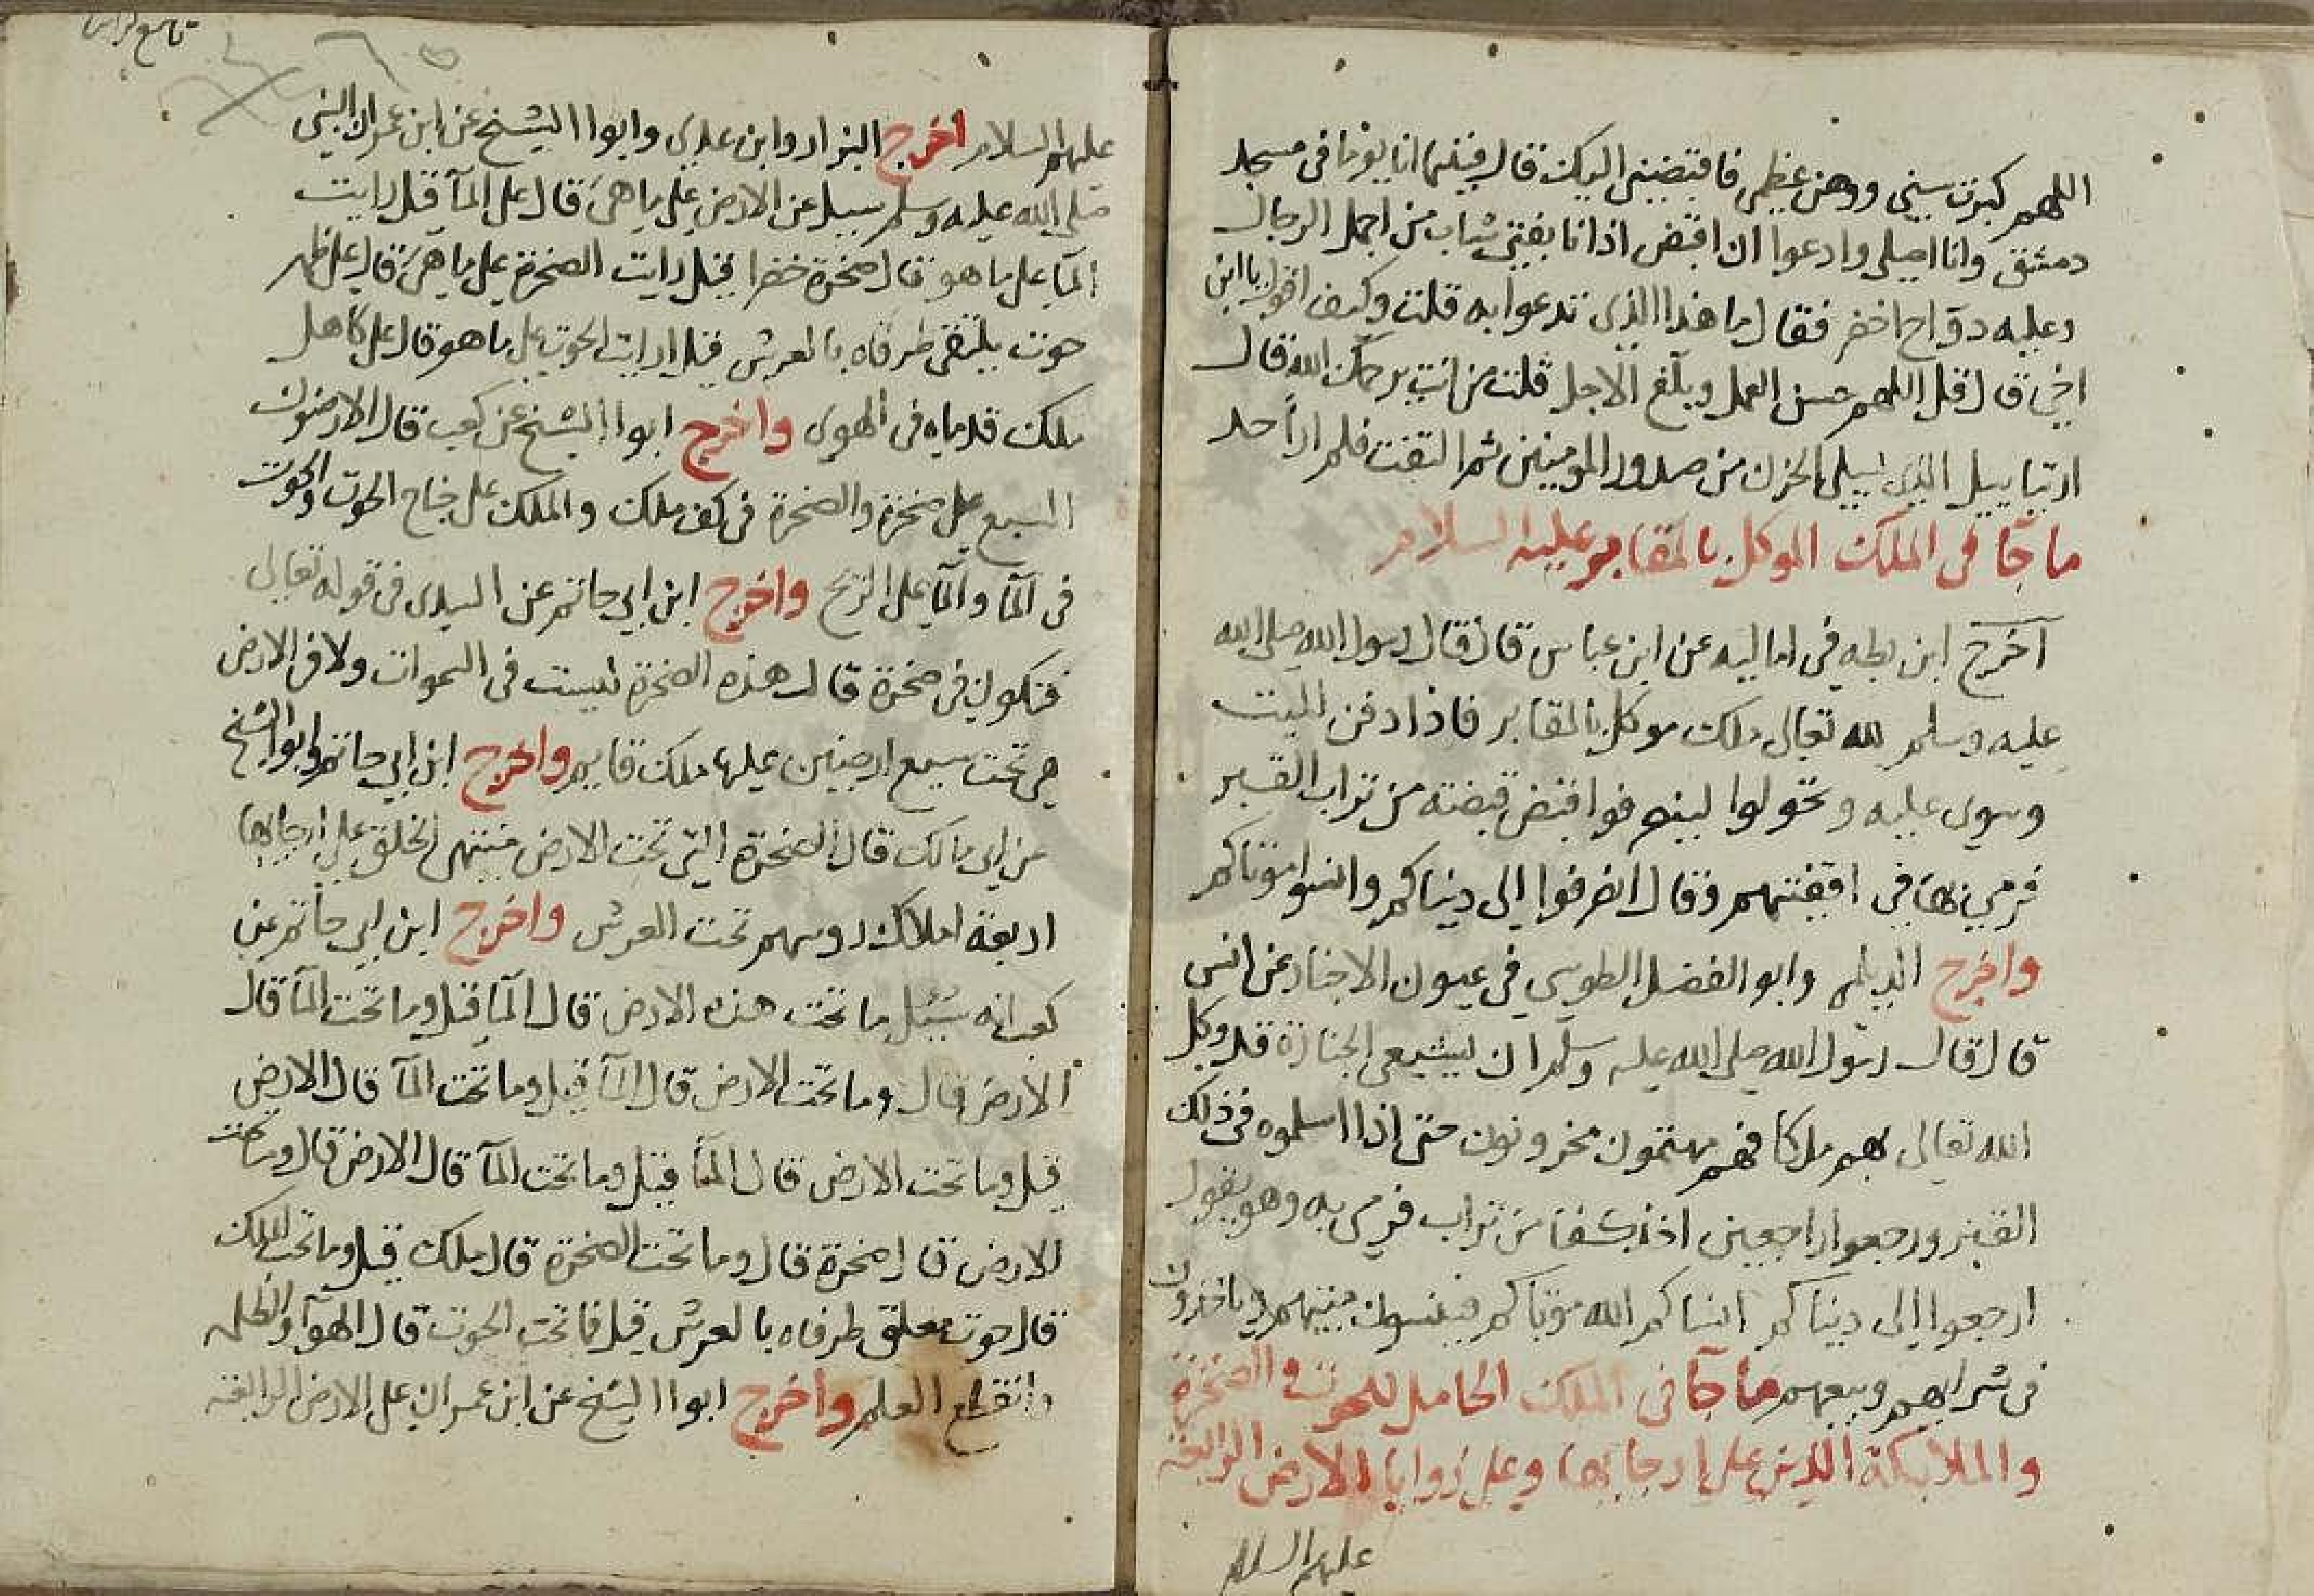 اللهم كبرت سني ووهن عظمي فاقبضني اليك قال فبينما انا يوما في مسجد
دمشق وانا اصلي وادعوا ان اقبض اذا انا بفتى شاب من اجمل الرجال
وعليه دواج اخضر فقال ما هذا الذي تدعوا به قلت وكيف اقول يا ابن
اخي قال قل اللهم حسن العمل وبلغ الاجل قلت من انت يرحمك الله قال
ارتياييل الذي يسلي الحزن من صدور المومنين ثم التفت فلم ار احد
ما جآ في الملك الموكل بالمقابر عليه السلام
آخرج ابن بطه في اماليه عن ابن عباس قال قال رسول الله صلى الله
عليه وسلم لله تعالى ملك موكل بالمقابر فاذا دفن الميت
وسوى عليه وتحولوا لينصرفوا قبض قبضته من تراب القبر
فرمي بها في اقفيتهم وقال انصرفوا الى دنياكم وانسوا موتاكم
واخرج الديلمي وابو الفضل الطوسي في عيون الاخبار عن انس
قال قال رسول الله صلى الله عليه وسلم ان لمشيعي الجنازة قد وكل
الله تعالى بهم ملكا فهم مهتمون محزونون حتى اذا اسلموه في ذلك
القبر ورجعوا راجعين اخذ كفا من تراب فرمى به وهو يقول
ارجعوا الى دنياكم انساكم الله موتاكم فينسون ميتهم وياخذون
في شرايهم وبيعهم ما جآ في الملك الحامل للحوت والصخرة
والملايكة الذين على ارجايها وعلى زوايا الارض الرابعة
عليهم السلام
تاسع كراس
عليهم السلام اخرج البزار وابن عدي وابوا الشيخ عن ابن عمر ان النبي
صلى الله عليه وسلم سيل عن الارض على ما هي قال على المآ قيل رايت
المآ على ما هو قال صخرة خضرا قيل رايت الصخرة على ما هي قال على ظهر
حوت يلتقي طرفاه بالعرش قيل ارايت الحوت على ما هو قال على كاهل
ملك قدماه في الهوى واخرج ابوا الشيخ عن كعب قال الارضون
السبع على صخرة والصخرة في كف ملك والملك على جناح الحوت والحوت
في المآ والمآ على الريح واخرج ابن ابي حاتم عن السدى في قوله تعالى
فتكون في صخرة قال هذه الصخرة ليست في السموات ولا في الارض
هي تحت سبع ارضين عليها ملك قايم واخرج ابن ابي حاتم وابو الشيخ
عن ابي مالك قال الصخرة التي تحت الارض منتهى الخلق على ارجايها
اربعة املاك روسهم تحت العرش واخرج ابن ابي حاتم عن
كعب انه سئل ما تحت هذه الارض قال المآ قيل وما تحت المآ قال
الارض قال وما تحت الارض قال المآ قيل وما تحت المآ قال الارض
قيل وما تحت الارض قال المآ قيل وما تحت المآ قال الارض قال وما تحت
الارض قال صخرة قال وما تحت الصخرة قال ملك قيل وما تحت الملك
قال حوت معلق طرفاه بالعرش قيل فما تحت الحوت قال الهوآ والظلمه
وانقطع العلم واخرج ابوا الشيخ عن ابن عمر ان على الارض الرابعه